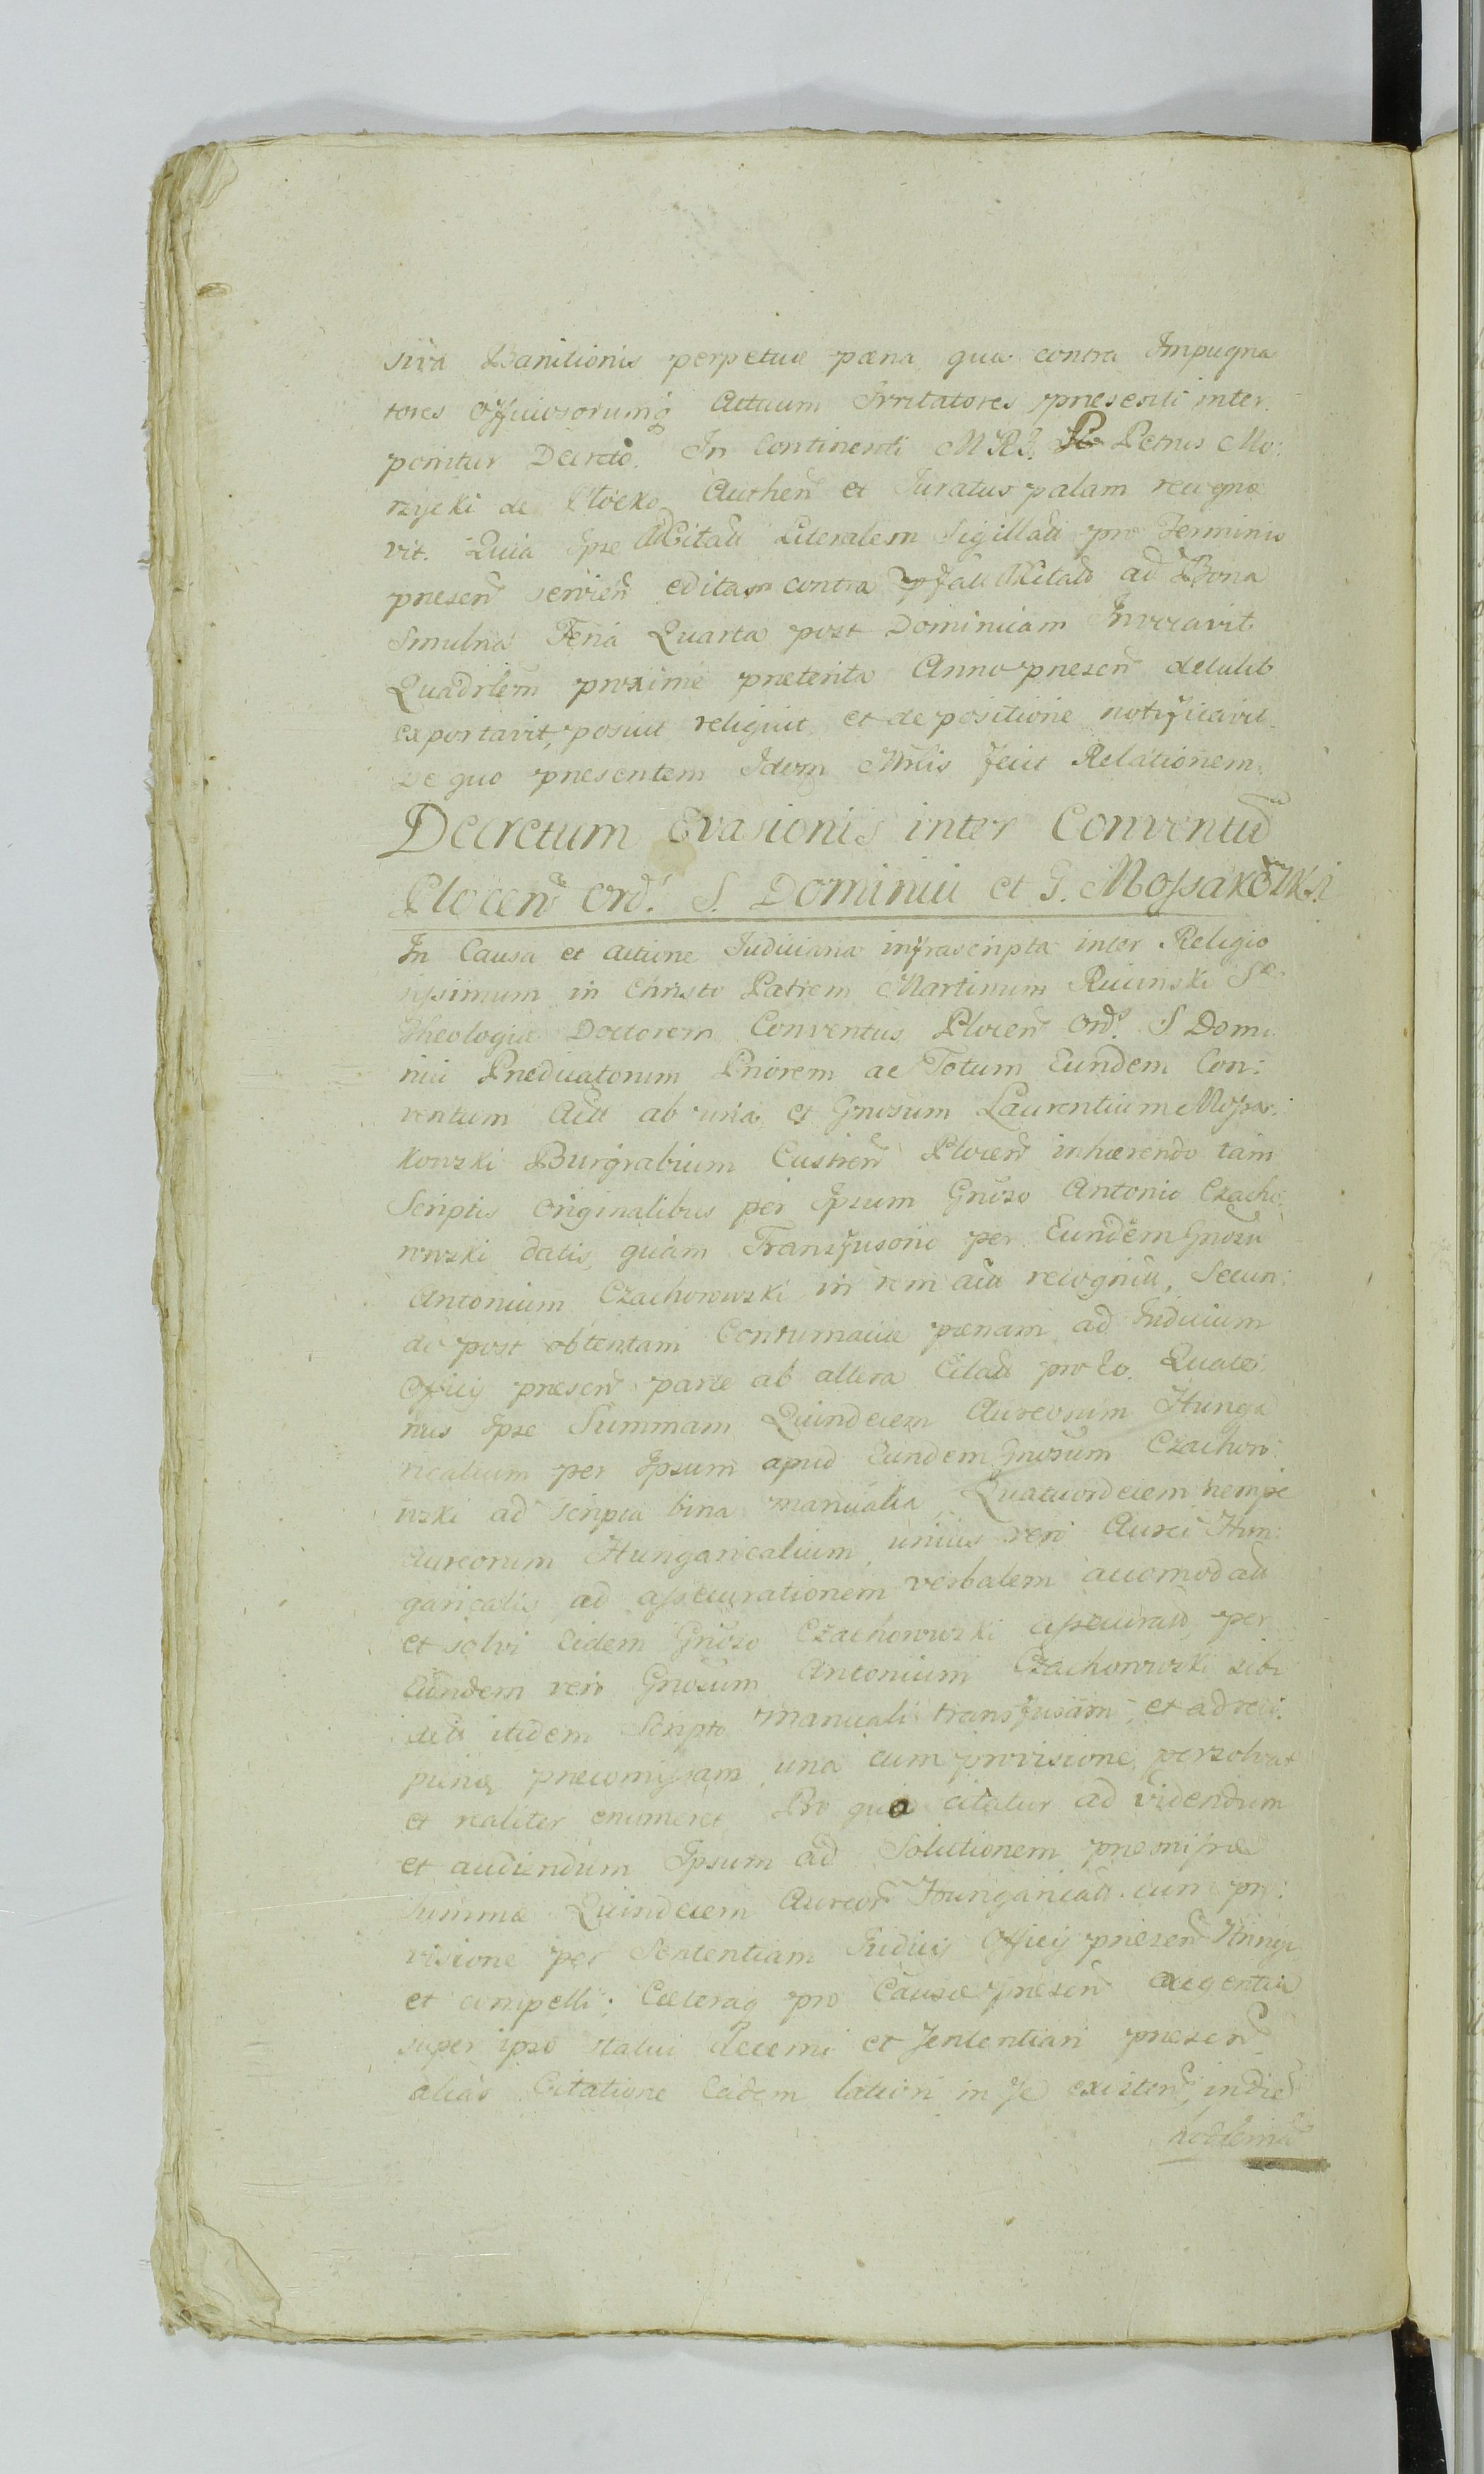 siva Banitionis perpetuæ pæna qua contra Impugna
tores Officiosorumq Actuum Irritatores præsenti inter
ponitur Decreto. In Continenti M.R.G. Petrus Mo:
rzycki de Plocko Authen et Juratus palam recogno
vit. Quia Ipse Citatt Literalem Sigillatt pro Termino
præsen servien editam contra Citato ad Bona
Smulna Feria Quarta post Dominicam Invocavit
Quadrlem proxime præterita Anno præsen detulit
exportavit, posuit reliquit et de positione notificavit
De quo præsentem Idem Mnlis fecit Relationem.
Decretum Evasionis inter Conventũ
Plocen Ord: S. Dominici et G. Mossakowski
In Causa et actione Judiciaria infrascripta inter Religio
sissimum in Christo Patrem Martinum Rucinski S
Theologiæ Doctorem Conventus Plocen Ord: S Domi
nici Prædicatorum Priorem ac Totum Eundem Con:
ventum Act ab una et Gnosum Laurentium Mossa:
kowski Burgrabium Castren Plocen inhærendo tam
Scriptis Originalibus per Ipsum Gnoso Antonio Czacho:
rowski datis, quam Transfusorio per Eundem Gnosũ
Antonium Czachorowski in rem act recognit, Secun:
do post obtentam Contumaciæ pænam ad Judicium
Officij præsen parte ab altera Citatt pro Eo. Quate
nus Ipse Summam Quindecem Aureorum Hunga
ricalium per Ipsum apud Eundem Gnosum Czachoro:
wski ad Scripta bina manualia Quatuordecem nempe
Aureorum Hungaricalium unius vero Aurei Hun:
garicalis ad assecurationem verbalem accomodatt
et solvi Eidem Gnoso Czachorowski assecurato, per
Eundem vero Gnosum Antonium Czachorowski sibi
itidem Scripto manuali transfusam et ad reci:
piend præcomissam una cum provisione persolvat
et realiter enumeret Pro quo citatur ad videndum
et audiendum Ipsum ad Solutionem præmissæ
Summæ Quindecem Aureor Hungaricatt. cum pro:
visione per Sententiam Judicij Officij præsen stringi
et compelli; Cæteraq pro Causæ præsen exigentia
super ipso statui decerni et sententiari præsen
alias Citatione Eadem latiori in se existen, in die
hodierna